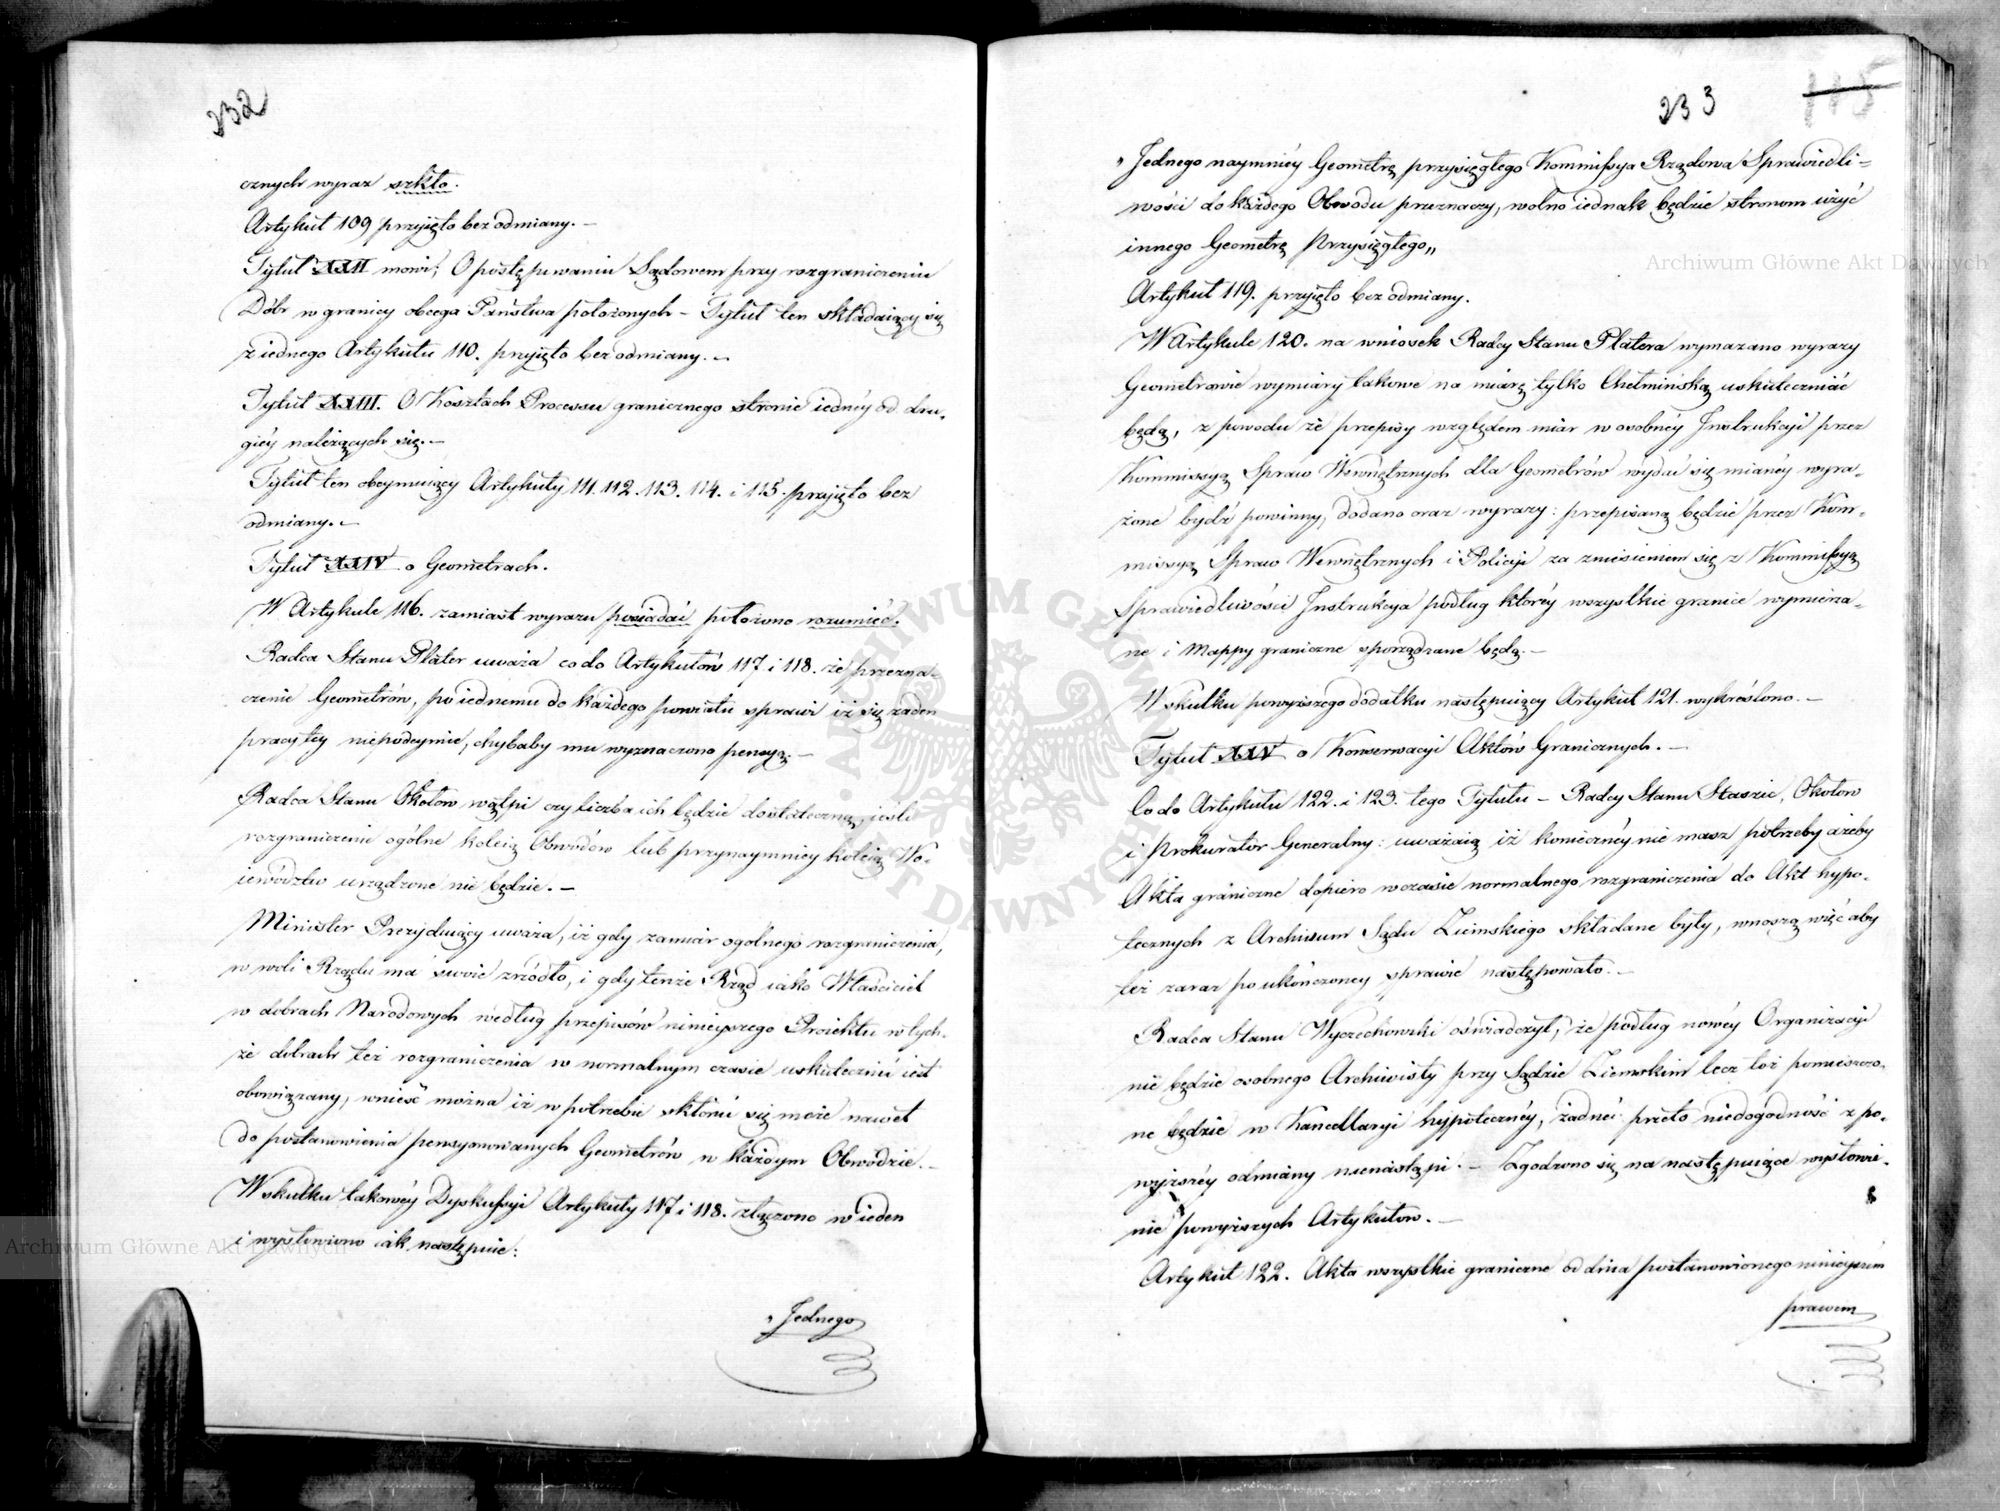 232
cznych wyraz szkło.
Artykuł 109 przyięto bez odmiany. —
Tytuł XXII mowi; O postępowaniu Sądowem przy rozgraniczeniu
Dóbr w granicy obcego Państwa położonych – Tytuł ten składaiący się
z iednego Artykułu 110. przyięto bez odmiany. —
Tytuł XXIII. O Kosztach Processu granicznego stronie iednéy od dru-
giéy należących się. —
Tytuł ten obeymuiący Artykuły 111. 112. 113. 114. i 115. przyięto bez
odmiany. —
Tytuł XXIV o Geometrach.
W Artykule 116. zamiast wyrazu posiadać położono rozumieć.
Radca Stanu Plater uważa co do Artykułów 117 i 118. że przezna-
czenie Geometrów, po iednemu do każdego powiatu sprawi iż się żaden
pracy tey niepodeymie, chybaby mu wyznaczono pensyą. —
Radca Stanu Okołow wątpi czy liczba ich będzie dostateczną, ieśli
rozgraniczenie ogólne koleią Obwodów lub przynaymniey koleią Wo-
iewództw urządzone nie będzie. —
Minister Prezyduiący uważa, iż gdy zamiar ogolnego rozgraniczenia,
w woli Rządu ma swoie zrzódło, i gdy tenże Rząd iako Właściciel
w dobrach Narodowych według przepisów ninieyszego Proiektu w tych-
że dobrach też rozgraniczenia w normalnym czasie uskutecznić iest
obowiązany, wnieść można iż w potrzebie skłonić się może nawet
do postanowienia pensyonowanych Geometrów w każdym Obwodzie. —
W skutku takowéy Dyskussyi Artykuły 117 i 118. złączono w ieden
i wysłowiono iak następuie:
„Jednego
233
115
„Jednego naymniéy Geometrę przysięgłego Kommissya Rządowa Sprawiedli-
wości do każdego Obwodu przeznaczy, wolno iednak będzie stronom użyć
innego Geometrę Przysięgłego„
Artykuł 119. przyięto bez odmiany.
W Artykule 120. na wniosek Radcy Stanu Platera wymazano wyrazy
Geometrowie wymiary takowe na miarę tylko Chełmińską uskuteczniać
będą, z powodu że przepisy względem miar w osobnéy Instrukcyi przez
Kommissyą Spraw Wewnętrznych dla Geometrów wydać się mianéy wyra-
żone bydź powinny, dodano oraz wyrazy: przepisaną będzie przez Kom-
missyą Spraw Wewnętrznych i Policyi za zniesieniem się z Kommissyą
Sprawiedliwości Instrukcya podług któréy wszystkie granice wymierza-
ne i Mappy graniczne sporządzane będą. —
W skutku powyższego dodatku następuiący Artykuł 121. wykreślono. —
Tytuł XXV o Konserwacyi Aktów Granicznych. —
Co do Artykułu 122. i 123. tego Tytułu – Radcy Stanu Staszic, Okołow
i Prokurator Generalny: uważaią iż koniecznéy nie masz potrzeby ażeby
Akta graniczne dopiero w czasie normalnego rozgraniczenia do Akt hypo-
tecznych z Archiwum Sądu Ziemskiego składane były, wnoszą więc aby
też zaraz po ukończoney sprawie następowało. —
Radca Stanu Wyczechowski oświadczył, że podług nowéy Organizacyi
nie będzie osobnego Archiwisty przy Sądzie Ziemskim lecz toż pomieszczo-
ne będzie w Kancellaryi hypotecznéy, żadna przeto niedogodność z po-
wyższéy odmiany nienastąpi. — Zgodzono się na następuiące wysłowie-
nie powyższych Artykułow. —
Artykuł 122. Akta wszystkie graniczne od dnia postanowionego ninieyszem
prawem
Archiwum Główne Akt Dawnych
Archiwum Główne Akt Dawnych
ARCHIWUM GŁÓWNE AKT DAWNYCH